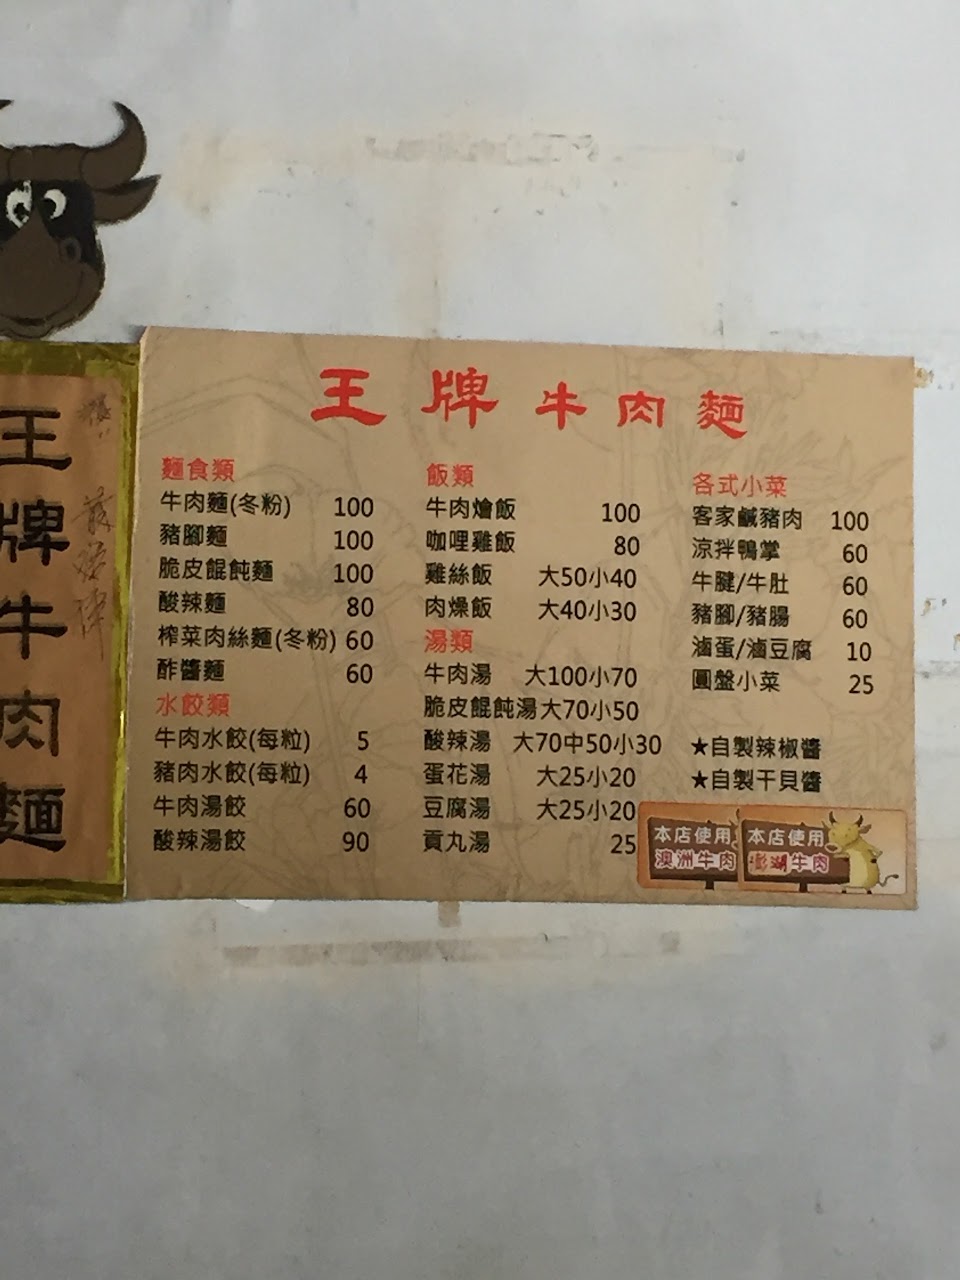 王牌牛肉麵
王牌牛肉麵
麵食類
牛肉麵(冬粉) 100
豬腳麵 100
脆皮餛飩麵 100
酸辣麵 80
榨菜肉絲麵(冬粉) 60
酢醬麵 60
水餃類
牛肉水餃(每粒) 5
豬肉水餃(每粒) 4
牛肉湯餃 60
酸辣湯餃 90
飯類
牛肉燴飯 100
咖哩雞飯 80
雞絲飯 大50小40
肉燥飯 大40小30
湯類
牛肉湯 大100小70
脆皮餛飩湯大70小50
酸辣湯 大70中50小30
蛋花湯 大25小20
豆腐湯 大25小20
貢丸湯 25
各式小菜
客家鹹豬肉 100
涼拌鴨掌 60
牛腱/牛肚 60
豬腳/豬腸 60
滷蛋/滷豆腐 10
圓盤小菜 25
★自製辣椒醬
★自製干貝醬
本店使用
澳洲牛肉
本店使用
澎湖牛肉